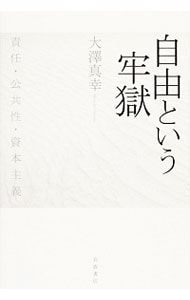 自由という
牢獄
大澤真幸
責任・公共性・資本主義
岩波書店